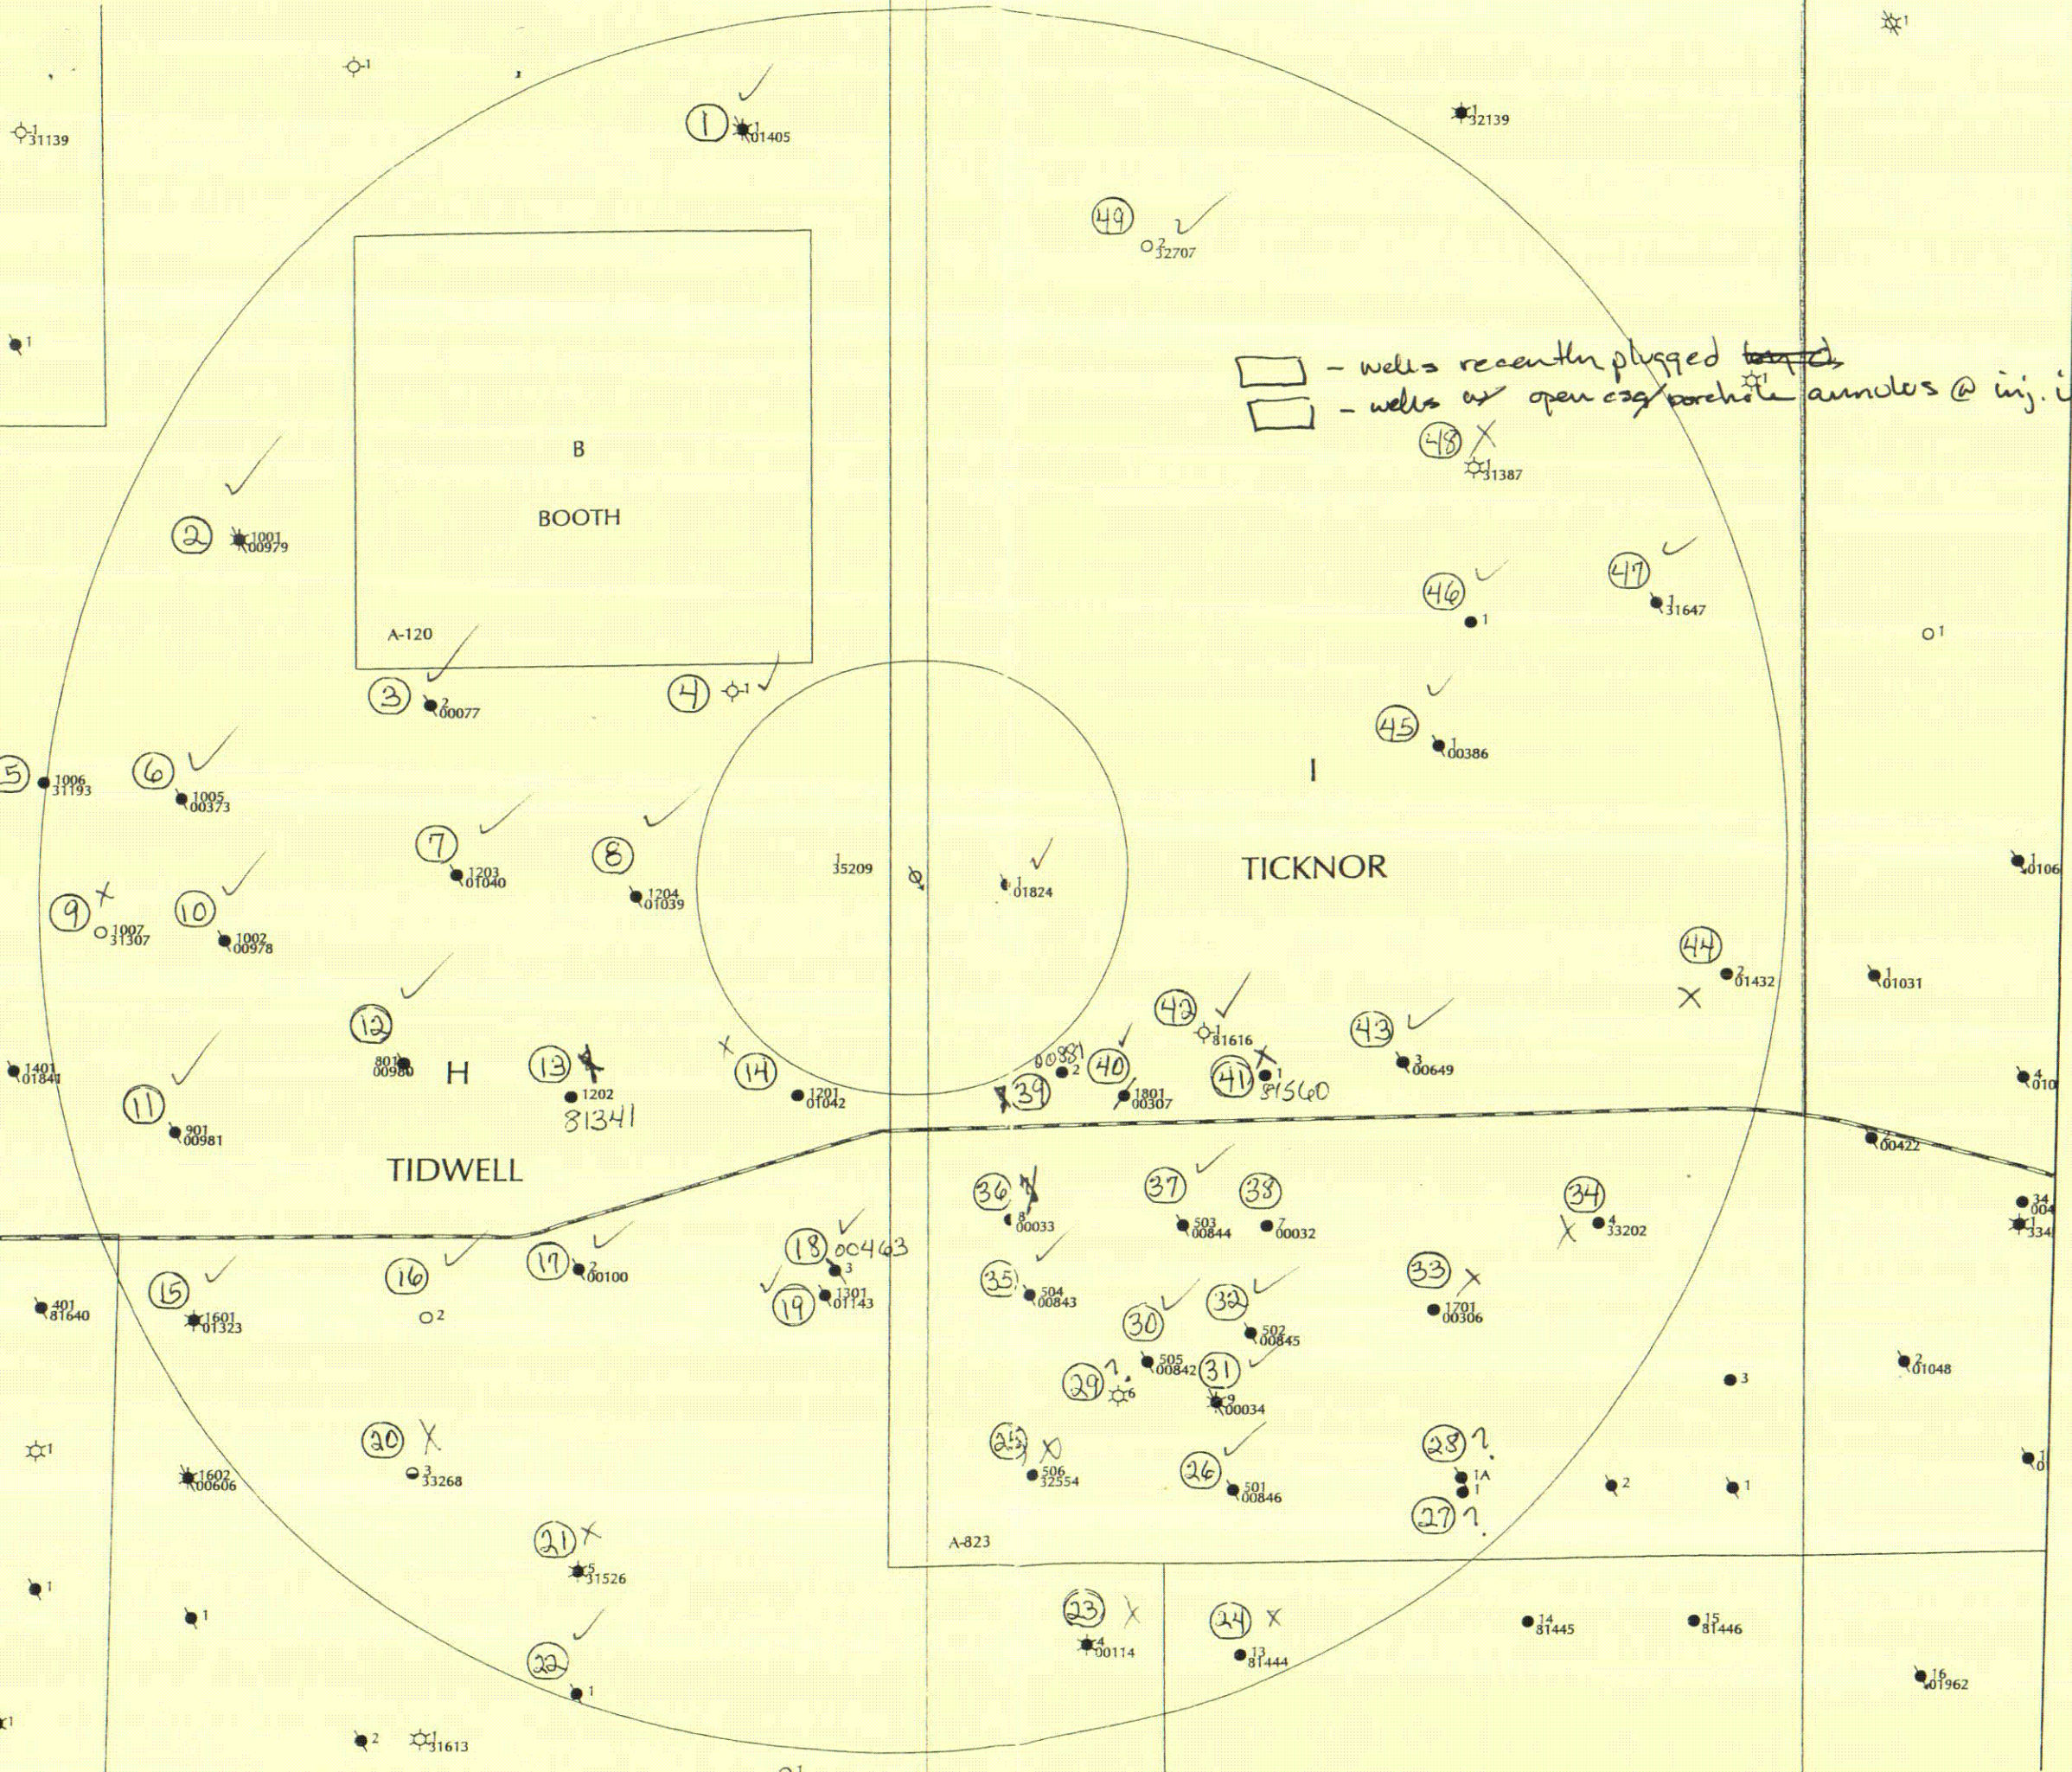 1
1
31139
1
1
01405
1
32139
49
2
32707
1
- wells recently plugged
1
- wells w/ open csg/borehole annulus @ inj. i
48
1
31387
B
BOOTH
A-120
2
1001
00979
46
1
47
1
31647
1
3
2
00077
4
1
45
1
00386
I
5
1006
31193
6
1005
00373
7
1203
01040
8
1204
01039
1
35209
1
01824
TICKNOR
1
0106
9
1007
31307
10
1002
00978
44
2
01432
1
01031
12
801
00980
H
13
1202
81341
14
1201
01042
00881
39
2
40
1801
00307
42
1
81616
41
1
81560
43
3
00649
4
010
1401
01841
11
901
00981
TIDWELL
00422
36
8
00033
37
503
00844
38
7
00032
34
4
33202
34
004
1
334
15
1601
01323
16
2
17
2
00100
18
00463
3
19
1301
01143
35
504
00843
33
1701
00306
401
81640
30
505
00842
32
502
00845
29 ?
6
31
9
00034
3
2
01048
1
1602
00606
20
3
33268
25
506
32554
26
501
00846
28 ?
1A
1
27 ?
2
1
1
0
21
5
31526
A-823
1
1
22
1
23
4
00114
24
13
81444
14
81445
15
81446
16
01962
1
2
1
31613
1